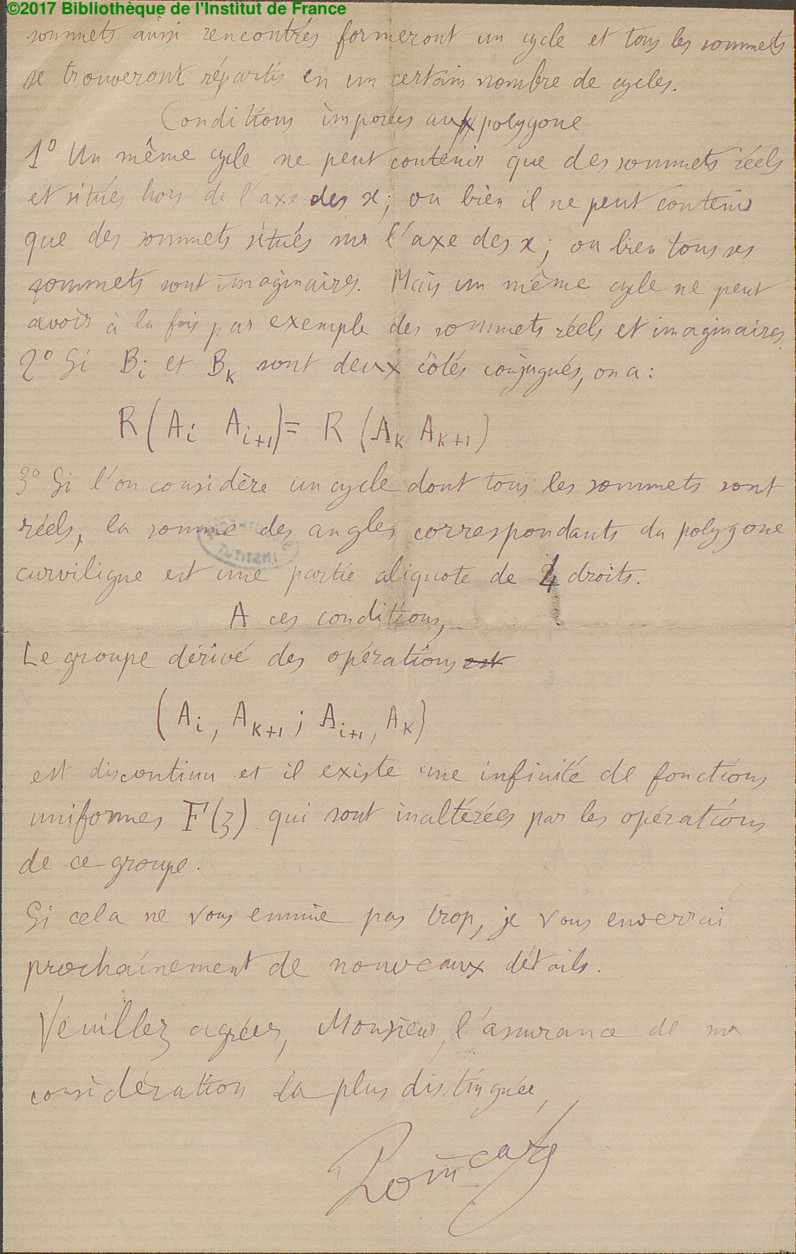 ©2017 Bibliothèque de l'Institut de France
sommets ainsi rencontrés formeront un cycle et tous les sommets
se trouveront répartis en un certain nombre de cycles.
Conditions imposées au polygone
1° Un même cycle ne peut contenir que des sommets réels
et situés hors de l'axe des x; ou bien il ne peut contenir
que des sommets situés sur l'axe des x; ou bien tous ses
sommets sont imaginaires. Mais un même cycle ne peut
avoir à la fois par exemple des sommets réels et imaginaires.
2° Si B_i et B_K sont deux côtés conjugués, on a:
R(A_i A_{i+1}) = R(A_K A_{K+1})
3° Si l'on considère un cycle dont tous les sommets sont
réels, la somme des angles correspondants du polygone
curviligne est une partie aliquote de 4 droits.
A ces conditions,
Le groupe dérivé des opérations est
(A_i, A_{K+1}; A_{i+1}, A_K)
est discontinu et il existe une infinité de fonctions
uniformes F(z) qui sont inaltérées par les opérations
de ce groupe.
Si cela ne vous ennuie pas trop, je vous enverrai
prochainement de nouveaux détails.
Veuillez agréer, Monsieur, l'assurance de ma
considération la plus distinguée,
Poincaré